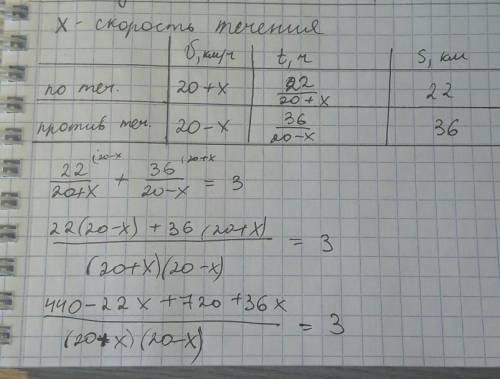 x - скорость течения
v, км/ч t, ч s, км
по теч. 20+x 22/20+x 22
против теч. 20-x 36/20-x 36
22/20+x (20-x + 36/20-x (20+x = 3
22(20-x) + 36(20+x)/(20+x)(20-x) = 3
440-22x+720+36x/(20+x)(20-x) = 3